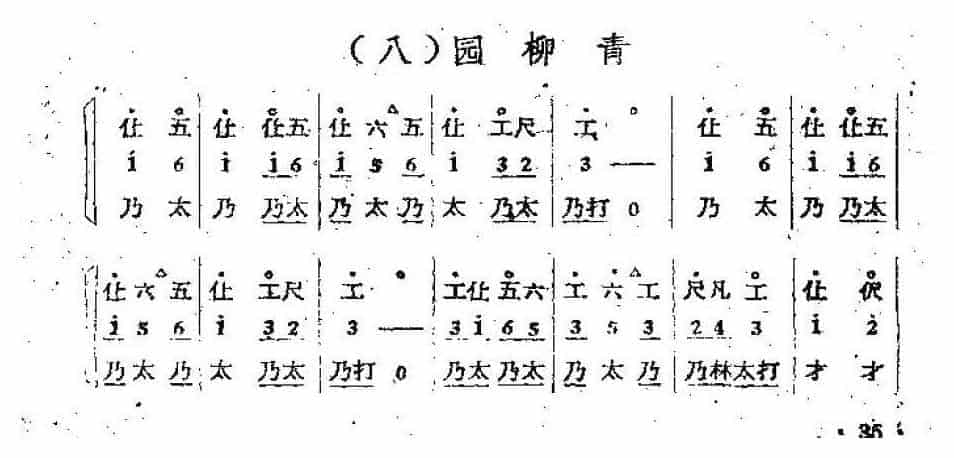 （八）园 柳 青
仩 五 仩 仩五 仩 六 五 仩 工尺 工 仩 五 仩 仩五
i 6 i i6 i 5 6 i 32 3 — i 6 i i6
乃 太 乃 乃太 乃 太 乃 太 乃太 乃打 0 乃 太 乃 乃太
仩 六 五 仩 工尺 工 工仩 五六 工 六 工 尺凡 工 仩 伬
i 5 6 i 32 3 — 3i 65 3 5 3 24 3 i 2
乃 太 乃 太 乃太 乃打 0 乃太 乃太 乃 太 乃 乃林 太打 才 才